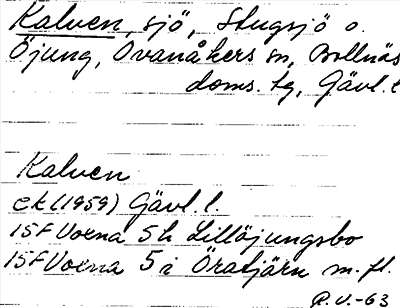 Kalven, sjö, Slugsjö o.
Öjung, Ovanåkers sn, Bollnäs
doms. tg, Gävl. l
Kalven
ek (1959) Gävl. l.
15F Voxna 5h Lillöjungsbo
15F Voxna 5i Öratjärn m. fl.
R.V.-63